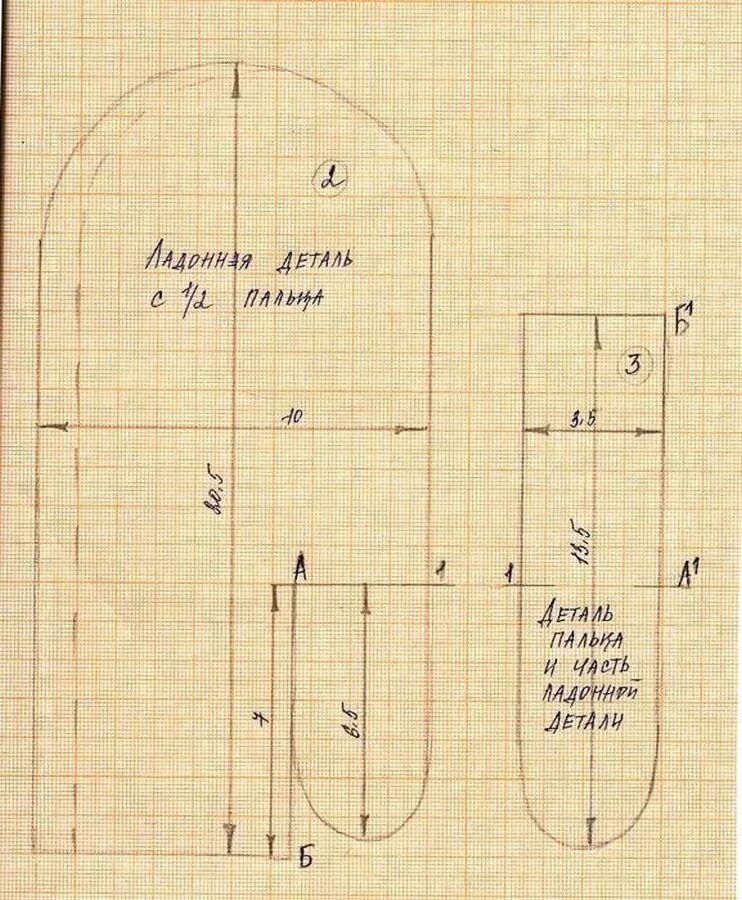 2
Ладонная деталь
с 1/2 пальца
10
20,5
А
1
7
6.5
Б
Б¹
3
3,5
13,5
1
А¹
Деталь
пальца
и часть
ладонной
детали